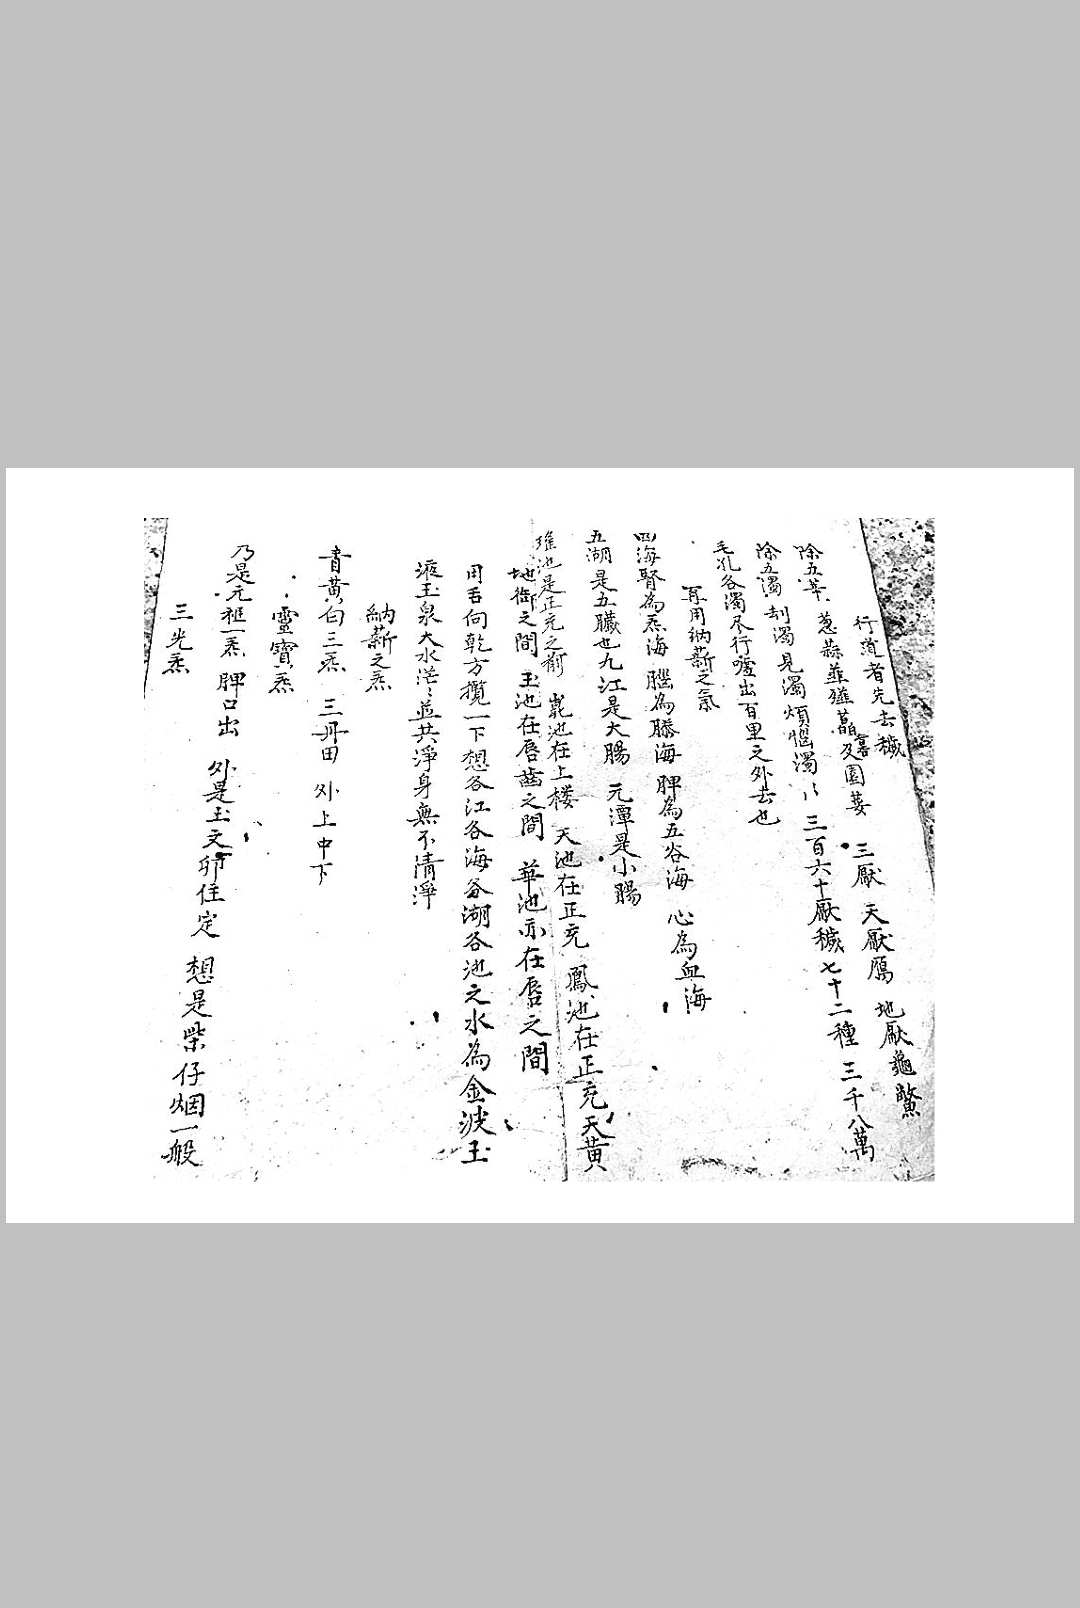 行道者先去穢
除五葷 葱蒜韮薤 及園荽 三厭 天厭鴈 地厭龜鱉
除五濁 刦濁見濁煩惱濁 三百六十厭穢七十二種 三千八萬
毛孔各濁尽行噓出百里之外去也
再用納薪之氣
四海腎為炁海 腦為髓海 脾為五谷海 心為血海
五湖是五臟也九江是大腸 元潭是小腸
池是正充之前 崑池在上楼 天池在正充 鳳池在正充天黄
地衘之間 玉池在唇齒之間 華池亦在唇之間
用舌向乾方攪一下想各江各海各湖各池之水為金波玉
液玉泉大水茫〻並共淨身無不清淨
納薪之炁
青黄白三炁 三丹田 外上中下
靈寶炁
乃是元祖一炁 脾口出 外是玉文 住定 想是柴仔烟一般
三光炁